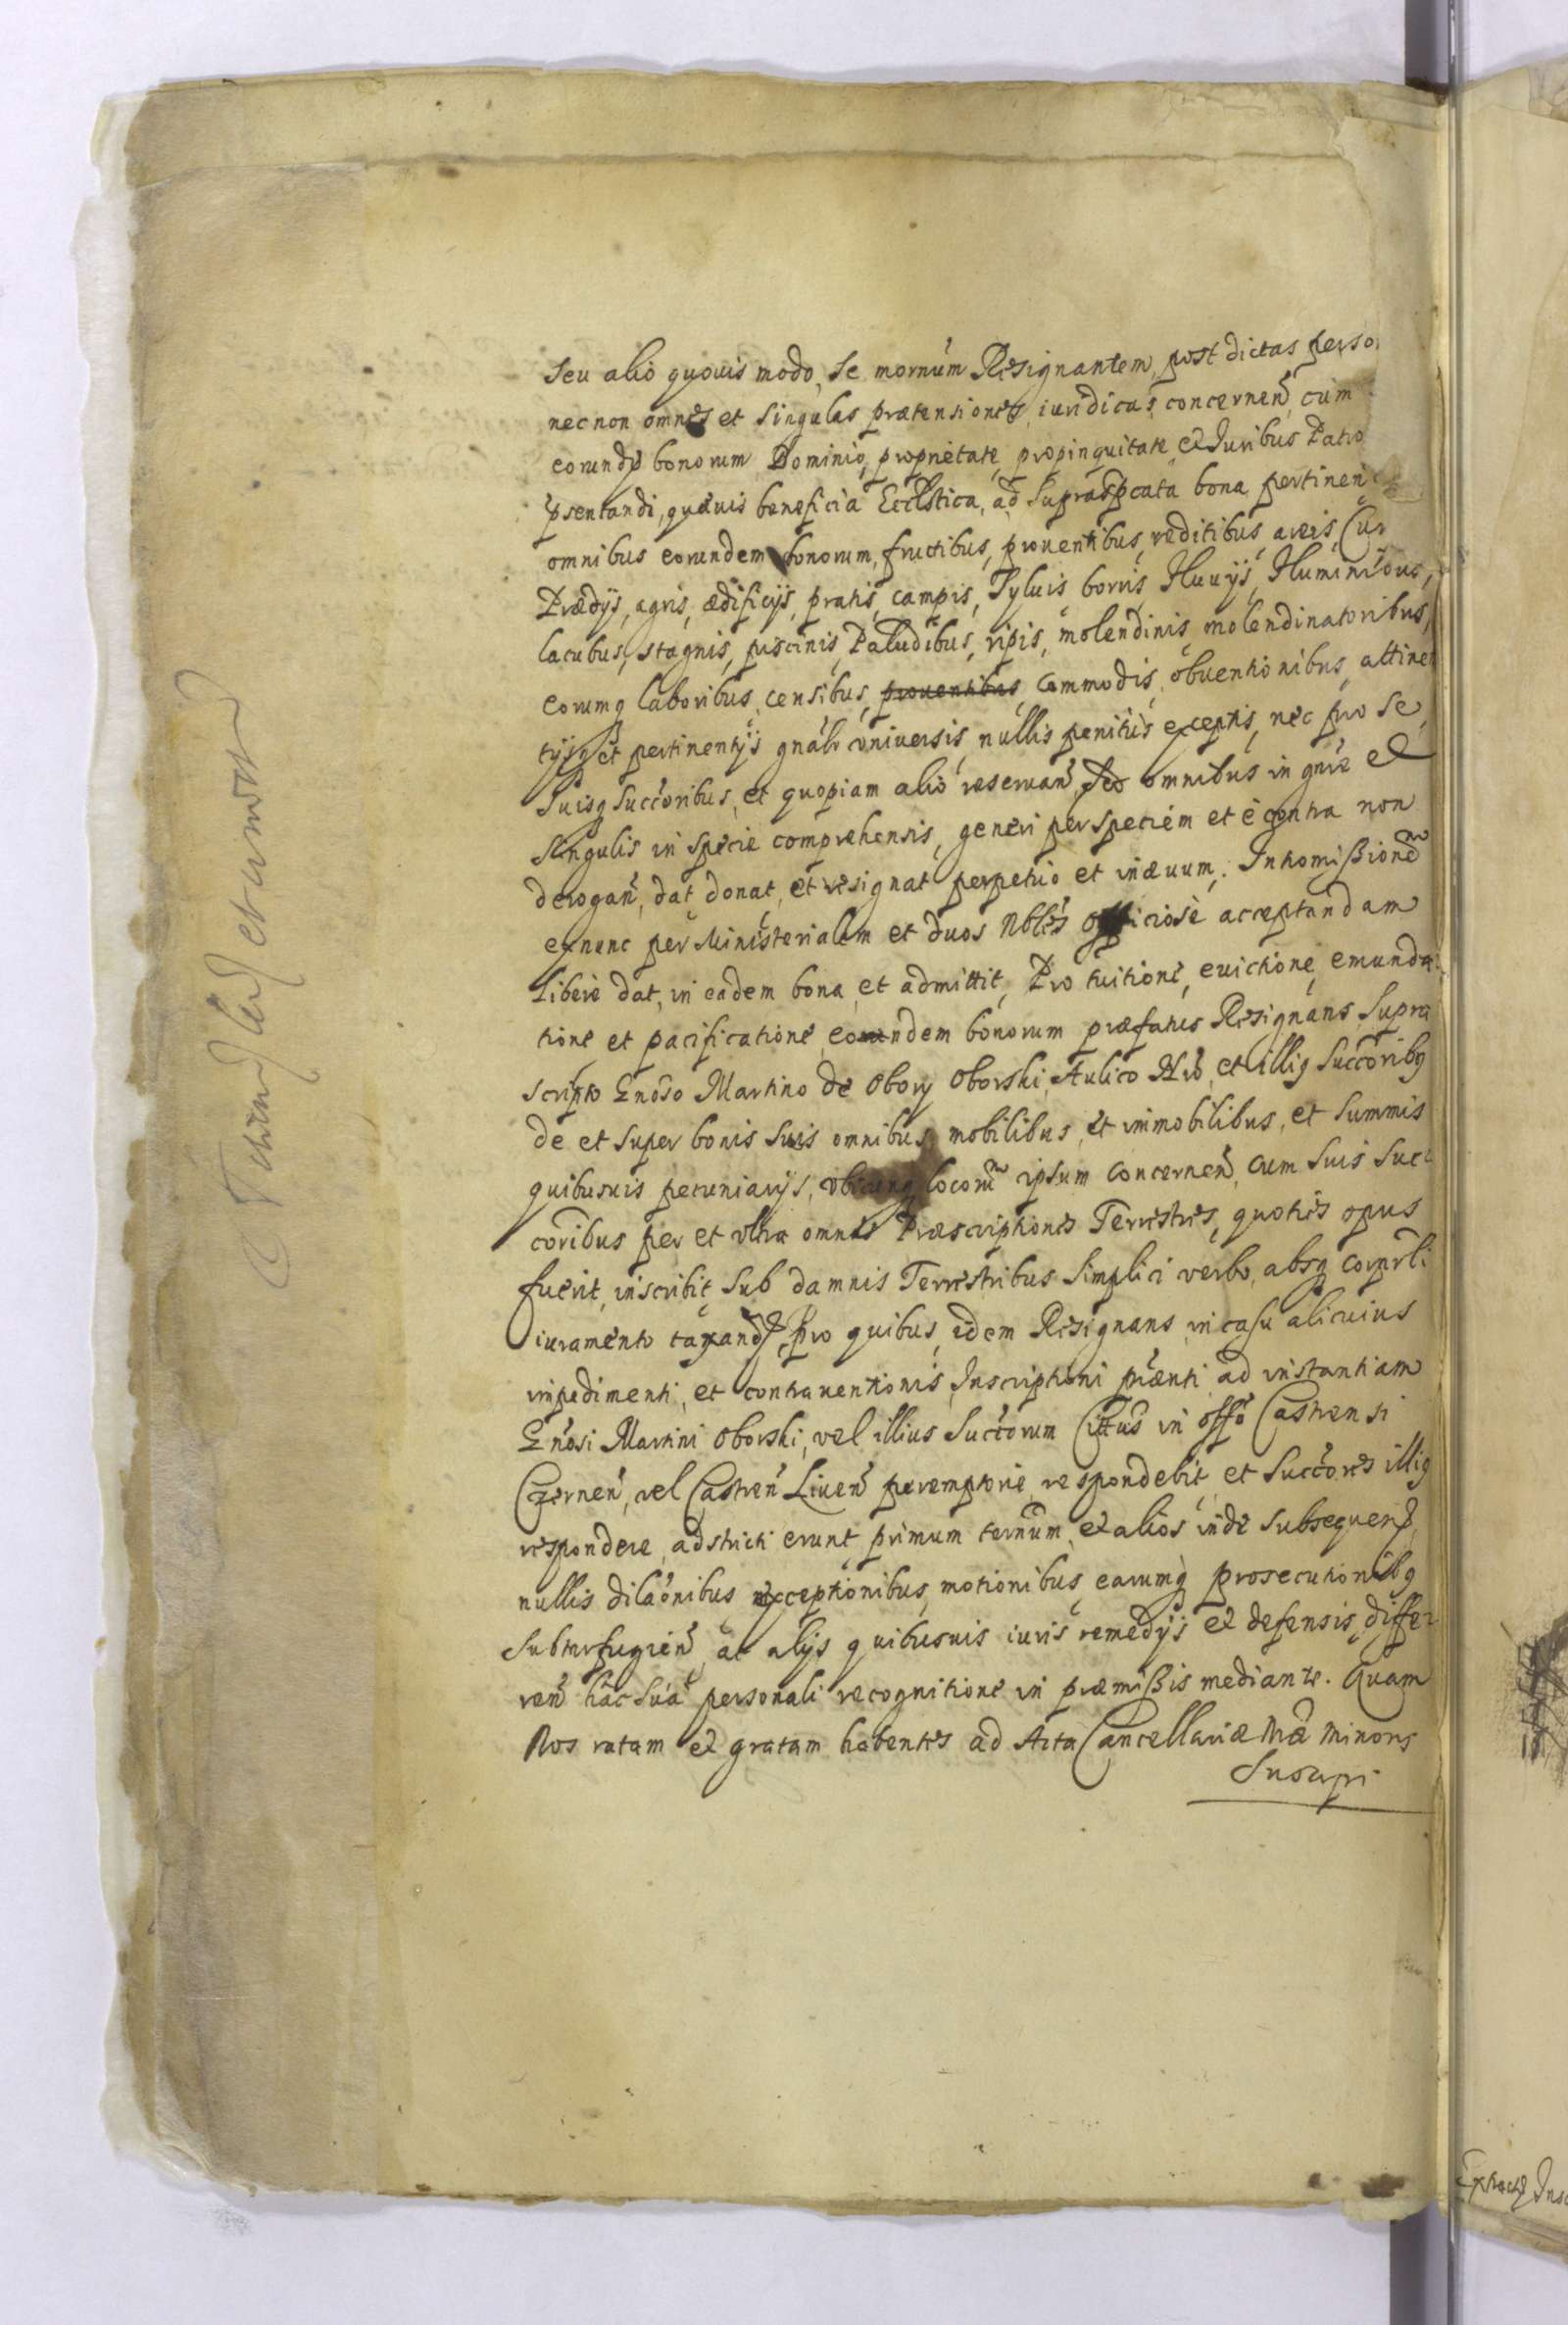 seu alio quouis modo, se mornum Resignantem, post dictas perso
nec non omnes et singulas prætensiones, iuridicas concernen̄, cum
eorundē bonorum Dominio, proprietate, propinquitate et Iuribus Patro
p̄sentandi, quævis beneficia Ecclstica, ad supradicata bona pertinen̄
omnibus eorundem bonorum, fructibus, prouentibus, reditibus, areis, Cur
Prædijs, agris, ædificijs, pratis, campis, Syluis borris, Fluuijs, Fluminibus,
lacubus, stagnis, piscinis, Paludibus, ripis, molendinis, molendinatoribus,
eorumq laboribus, censibus, prouentibus, commodis, obuentionibus, attinen
tijsq et pertinentijs gnālr vniversis, nullis penitus exceptis, nec pro se,
suisq succōribus, et quopiam alio reseruan̄, sed omnibus in gnre et
singulis in specie comprehensis, generi per speciem et e contra non
derogan̄, dat donat, et resignat perpetuo et in æuum, Intromissionē
ex nunc per Ministerialem et duos Nobles officiose acceptandam
libere dat, in eadem bona, et admittit, Pro tuitione, euictione, emunda
tione et pacificatione, eorundem bonorum præfatus Resignans supra
scripto Gnōso Martino de Obory Oborski, Aulico Nrō, et illiq succōribq
de et super bonis suis omnibus mobilibus, et immobilibus, et summis
quibusuis pecuniarijs, vbicunq locorū ipsum concernen̄, cum suis suc
cōribus per et vltra omnes Præscriptiones Terrestres, quoties opus
fuerit, inscribit, sub damnis Terrestribus simplici verbo, absq corprli
iuramento taxand, Pro quibus, idem Resignans, in casu alicuius
impedimenti, et contrauentionis, Inscriptioni præn̄ti, ad instantiam
Gnōsi Martini Oborski, vel illius succōrum Cittūs in offō Castrensi
Czernen̄, vel Castren̄ Liuen̄ peremptorie respondebit, et succōres illiq
respondere, adstricti erunt, primum ternūm, et alios inde subsequen̄,
nullis dilaōnibus exceptionibus, motionibus, earumq prosecutionibq
subterfugien̄, ac alijs quibusuis iuris remedijs et defensis, differ
ren̄ hac sua personali recognitione in præmissis mediante. Quam
Nos ratam et gratam habentes ad Acta Cancellariæ Nræ Minoris
Suscipi